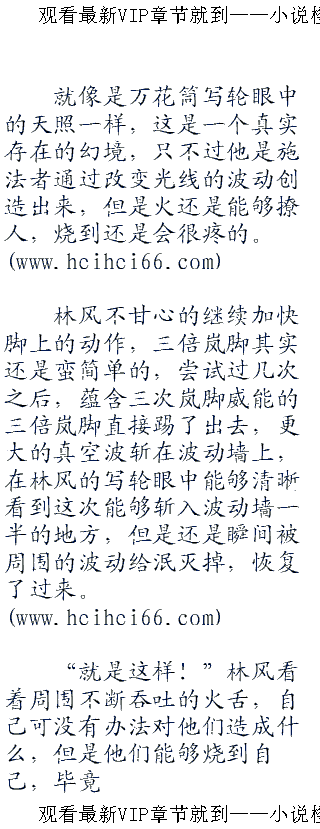 观看最新VIP章节就到——小说格
就像是万花筒写轮眼中
的天照一样，这是一个真实
存在的幻境，只不过他是施
法者通过改变光线的波动创
造出来，但是火还是能够撩
人，烧到还是会很疼的。
(www.hcihci66.com)
林风不甘心的继续加快
脚上的动作，三倍岚脚其实
还是蛮简单的，尝试过几次
之后，蕴含三次岚脚威能的
三倍岚脚直接踢了出去，更
大的真空波斩在波动墙上，
在林风的写轮眼中能够清晰
看到这次能够斩入波动墙一
半的地方，但是还是瞬间被
周围的波动给泯灭掉，恢复
了过来。
(www.hcihci66.com)
“就是这样！”林风看
着周围不断吞吐的火舌，自
己可没有办法对他们造成什
么，但是他们能够烧到自
己，毕竟
观看最新VIP章节就到——小说格